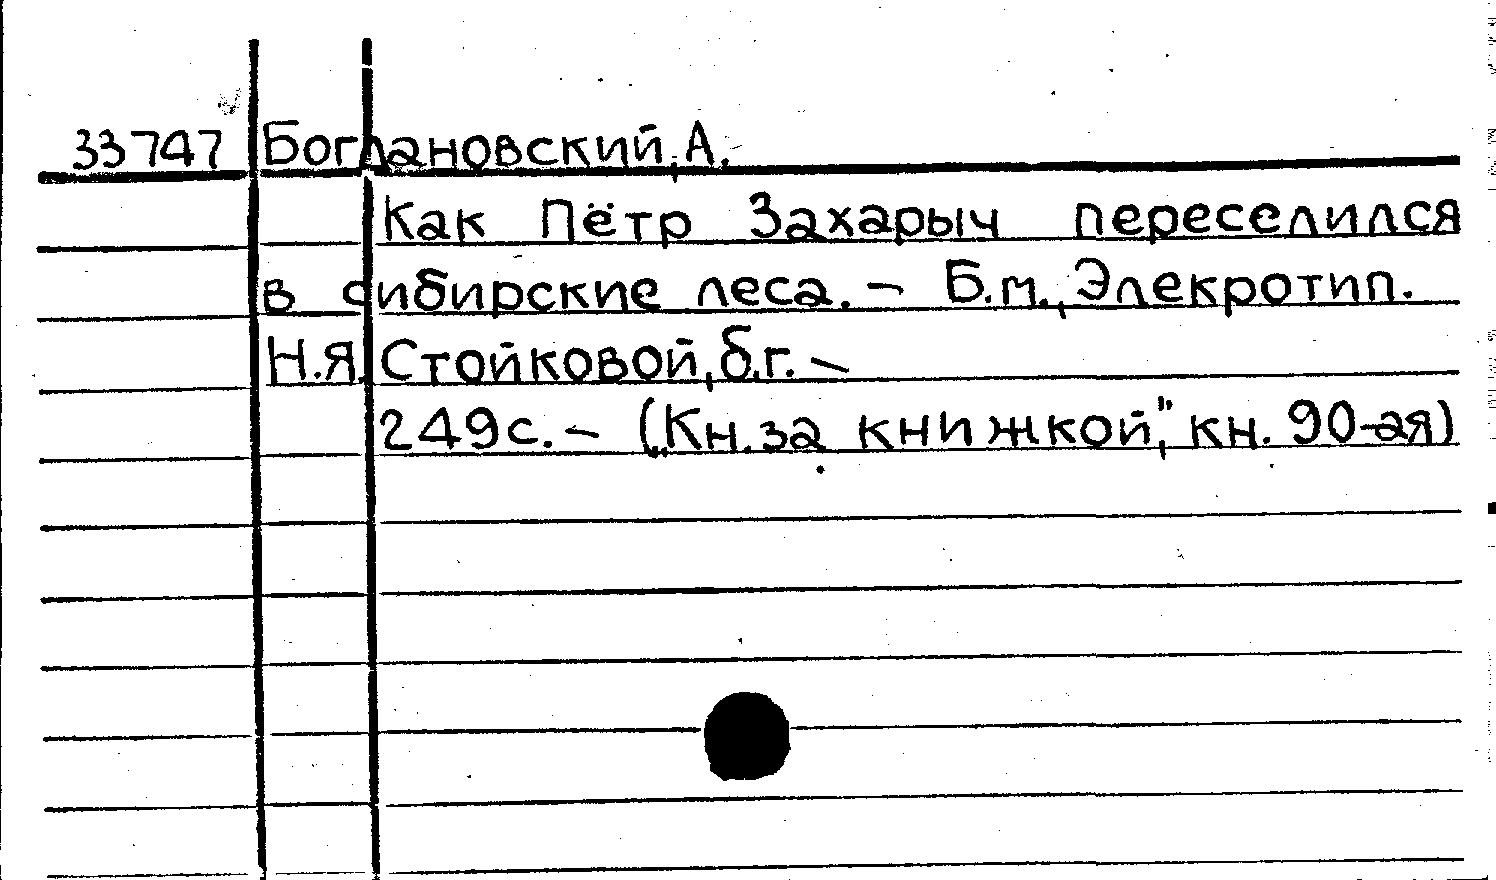 33747 Богдановский, А.
Как Пётр Захарыч переселился
в сибирские леса. – Б.м., Элекротип.
Н.Я. Стойковой, б.г. –
249с. – („Кн. за книжкой", кн. 90-ая)